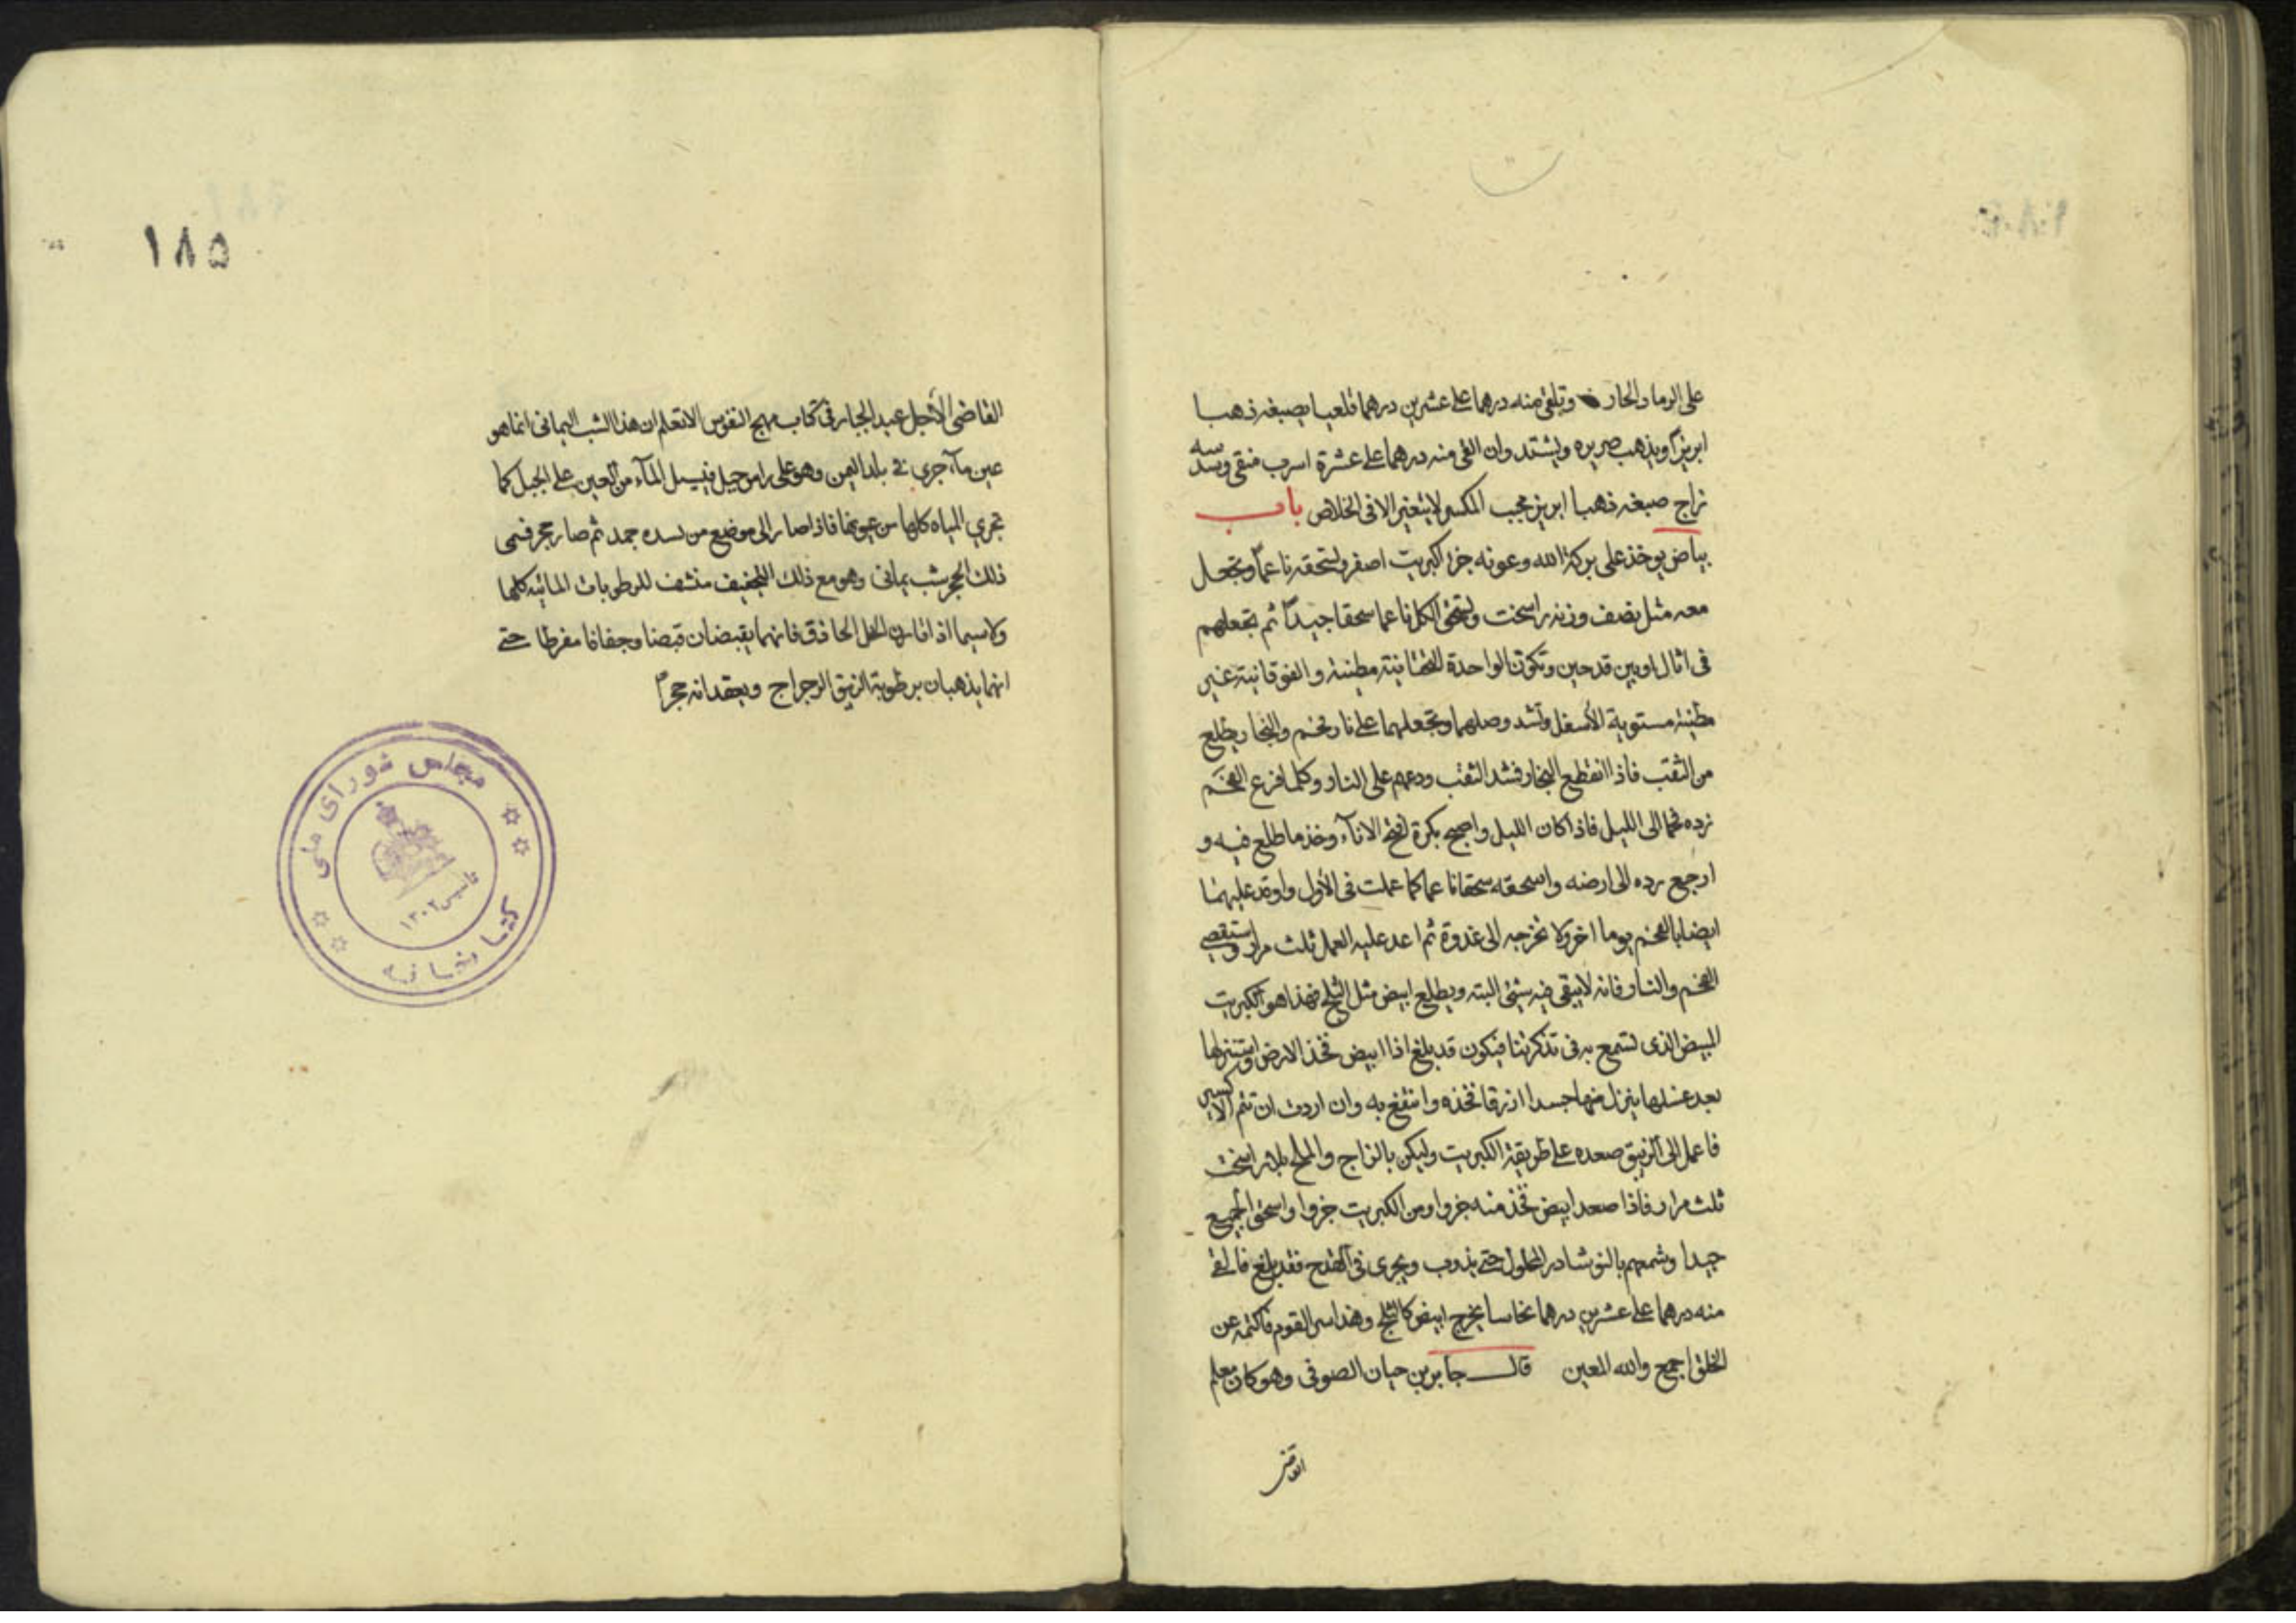 على الرماد الحار وتلقى منه درهما على عشرين درهما قلعيا يصبغه ذهبا
ابريزا ويذهب صريره ويشتد وان القى منه درهما على عشرة اسرب منقى وسدسه
زاج صبغه ذهبا ابريز عجيب المكسر لا يتغير الا فى الخلاص باب
بياض يوخذ على بركة الله وعونه جزا كبريت اصفر وتسحقه ناعما وتجعل
معه مثل نصف وزنه راسخت وتسحق الكل ناعما سحقا جيدا ثم تجعلهم
فى اثال او بين قدحين وتكون الواحدة التحتانية مطينة والفوقانية غير
مطينة مستوية الأسفل وتشد وصلهما وتجعلهما على نار فحم والبخار يطلع
من الثقب فاذا انقطع البخار فشد الثقب ودعهم على النار وكلما فرغ الفحم
زده فحما الى الليل فاذا كان الليل واصبح بكرة افتح الاناء وخذ ما طلع فيه و
ارجع رده الى ارضه واسحقه سحقا ناعما كما عملت فى الأول واوقد عليهما
ايضا بالفحم يوما اخر ولا تخرجه الى غدوة ثم اعد عليه العمل ثلث مرار واستقصى
الفحم والنار فانه لا يبقى فيه شئ البته ويطلع ابيض مثل الثلج فهذا هو الكبريت
المبيض الذى تسمع به فى تذكرتنا فيكون قد بلغ اذا ابيض فخذ الارض واستنزلها
بعد غسلها ينزل منها جسدا ازرقا فخذه وانتفع به وان اردت ان تتم الاكسير
فاعمل الى الزيبق صعده على طريقة الكبريت وليكن بالزاج والملح بلا راسخت
ثلث مرار فاذا صعد ابيض فخذ منه جزوا ومن الكبريت جزوا واسحق الجميع
جيدا وشمعهم بالنوشادر المحلول حتى يذوب ويجرى فى القدح فقد بلغ فالقى
منه درهما على عشرين درهما نحاسا يخرج ابيض كالثلج وهذا سر القوم فاكتمه عن
الخلق اجمع والله المعين قال جابر بن حيان الصوفى وهو كان معلم
القاضى
١٨٥
القاضى الأجل عبد الجبار فى كتاب مهج النفوس الا تعلم ان هذا الشب اليمانى انما هو
عين ماء جرى فى بلد اليمن وهو على راس جبل فيسيل الماء من العين على الجبل كما
تجرى المياه كلها من عيونها فاذا صار الى موضع من سده جمد ثم صار حجر فسمى
ذلك الحجر شب يمانى وهو مع ذلك التجفيف منشف للرطوبات المائيه كلها
ولا سيما اذا قارن الخل الحاذق فانهما يقبضان قبضا وجفافا مفرطا حتى
انهما يذهبان برطوبة الزيبق الرجراج ويعقدانه حجرا
مجلس شوراى ملى
تاسيس ١٣٠٢
كتابخانه